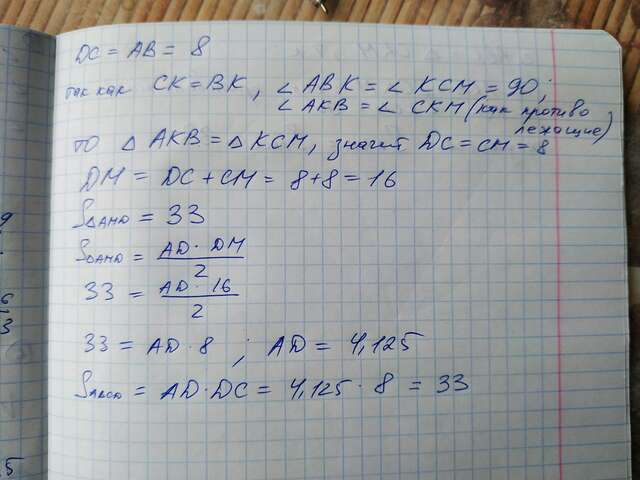 DC = AB = 8
так как CK = BK, ∠ABK = ∠KCM = 90.
∠AKB = ∠CKM (как противо
лежащие)
то △AKB = △KCM, значит DC = CM = 8
DM = DC + CM = 8 + 8 = 16
S△AMD = 33
S△AMD = AD · DM / 2
33 = AD · 16 / 2
33 = AD · 8, AD = 4,125
SABCD = AD · DC = 4,125 · 8 = 33